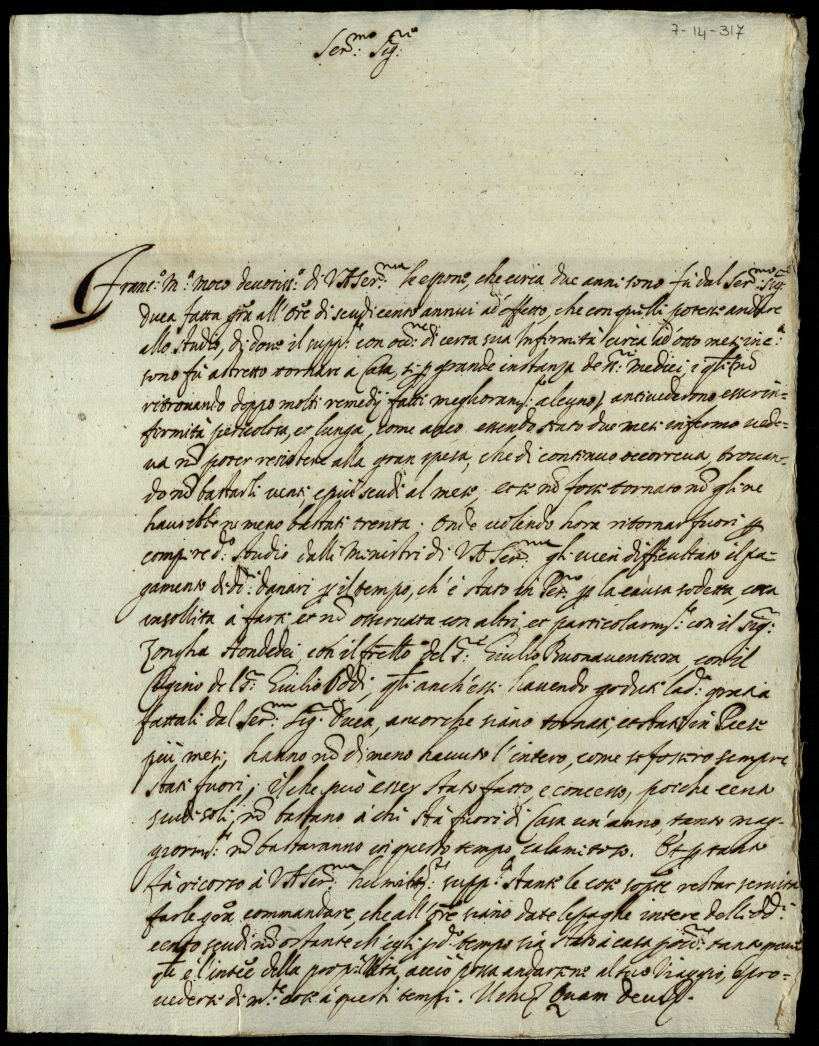 7-14-317
Ser.mo Sig.re
Franc.o M.a devotiss.o di V.A Ser.ma le espone, che circa due anni sono fù dal Ser.mo Sig.r
Duca fatta gra all'Ore di scudi cento annui ad effetto, che con quelli potesse andare
allo Studio, di dove il supp.te con occ.ne di certa sua Infirmità circa ad otto mesi
sono fù astretto tornare a Casa, si p grande instanza de SS.ri Medici, i qli nõ
ritrovando doppo molti remedij fatti meglioram.to alcuno, antivederono esser in-
firmità pericolosa, et lunga, come anco essendo stato due mesi infermo vede-
va nõ poter resistere alla gran spesa, che di continuo occorreva, trovan-
do nõ bastarli venti e più scudi al mese, et se nõ fosse tornato nõ gli ne
havrebbe ne meno bastati trenta: Onde volendo hora ritornar fuori p
compire d.o studio dalli Ministri di V.A Ser.ma gli vien difficultato il pa-
gamento di d.i danari p il tempo, ch'è stato in p la causa sodetta, cosa
insollita à farsi, et nõ osservata con altri, et particolarm.te con il Sig.r
Zongha Hondedei, con il frello del S.r Giulio Buonaventura, con il
Cugino del S.r Giulio Oddi, qli anch'essi havendo goduti la d.a gratia
fattali dal Ser.mo Sig.r Duca, ancorche siano tornati, et stati in Paese
più mesi, hanno nõ dimeno havuto l'intero, come se fossero sempre
stati fuori, il che può esser stato fatto e concesso, poiche cento
scudi soli nõ bastano à chi stà fuori di Casa un'anno, tanto mag-
giorm.te nõ bastaranno in questo tempo calamitoso. Et p tanto
fà ricorso à V.A Ser.ma humilm.te supp.la stante le cose sopte restar servita
farle gra commandare, che all'Ore siano date le paghe intere delli dd.i
cento scudi nõ ostante ch'egli p d.o tempo sia stato à casa
è l'intẽe della acciò possa andarsene al suo Viaggio, e pro-
vedersi di m.te cose à questi tempi. Quam Deus